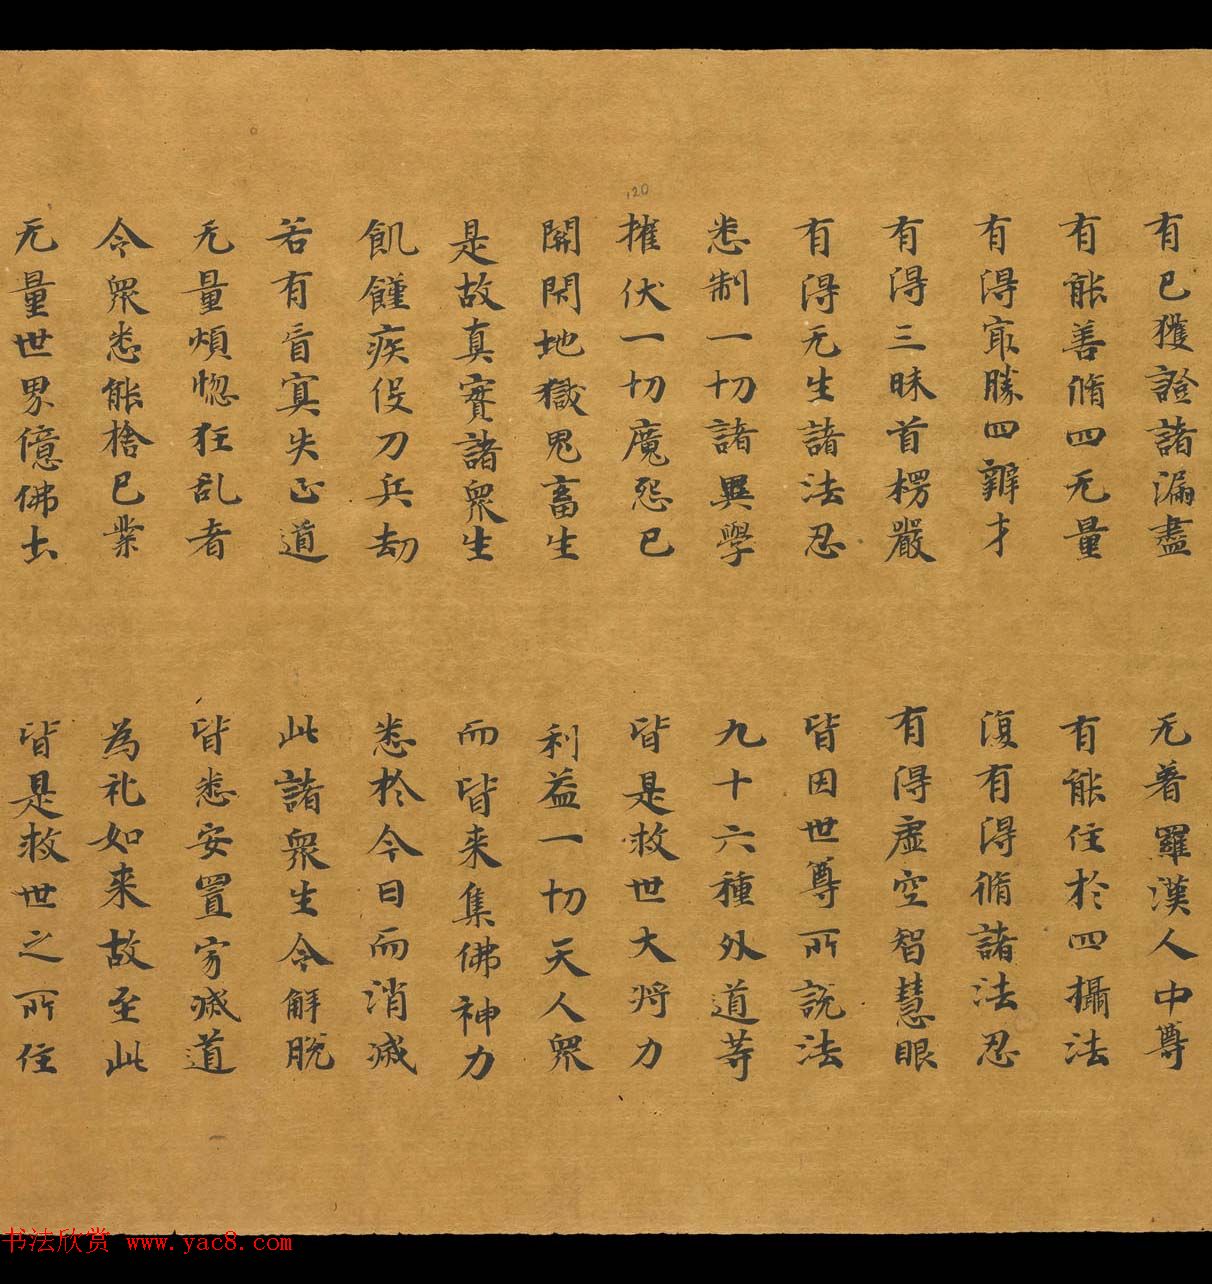 有已獲證諸漏盡　无著羅漢人中尊
有能善脩四无量　有能住於四攝法
有得冣勝四辯才　復有得脩諸法忍
有得三昧首楞嚴　有得虛空智慧眼
有得无生諸法忍　皆因世尊所說法
悉制一切諸異學　九十六種外道等
摧伏一切魔怨已　皆是救世大將力
開閇地獄鬼畜生　利益一切天人衆
是故真實諸衆生　而皆來集佛神力
飢饉疾疫刀兵劫　悉於今日而消滅
若有盲冥失正道　此諸衆生令解脫
无量煩惚狂乱者　皆悉安置寂滅道
令衆悉能捨已業　為礼如来故至此
无量世界億佛土　皆是救世之所住
120
书法欣赏 www.yac8.com